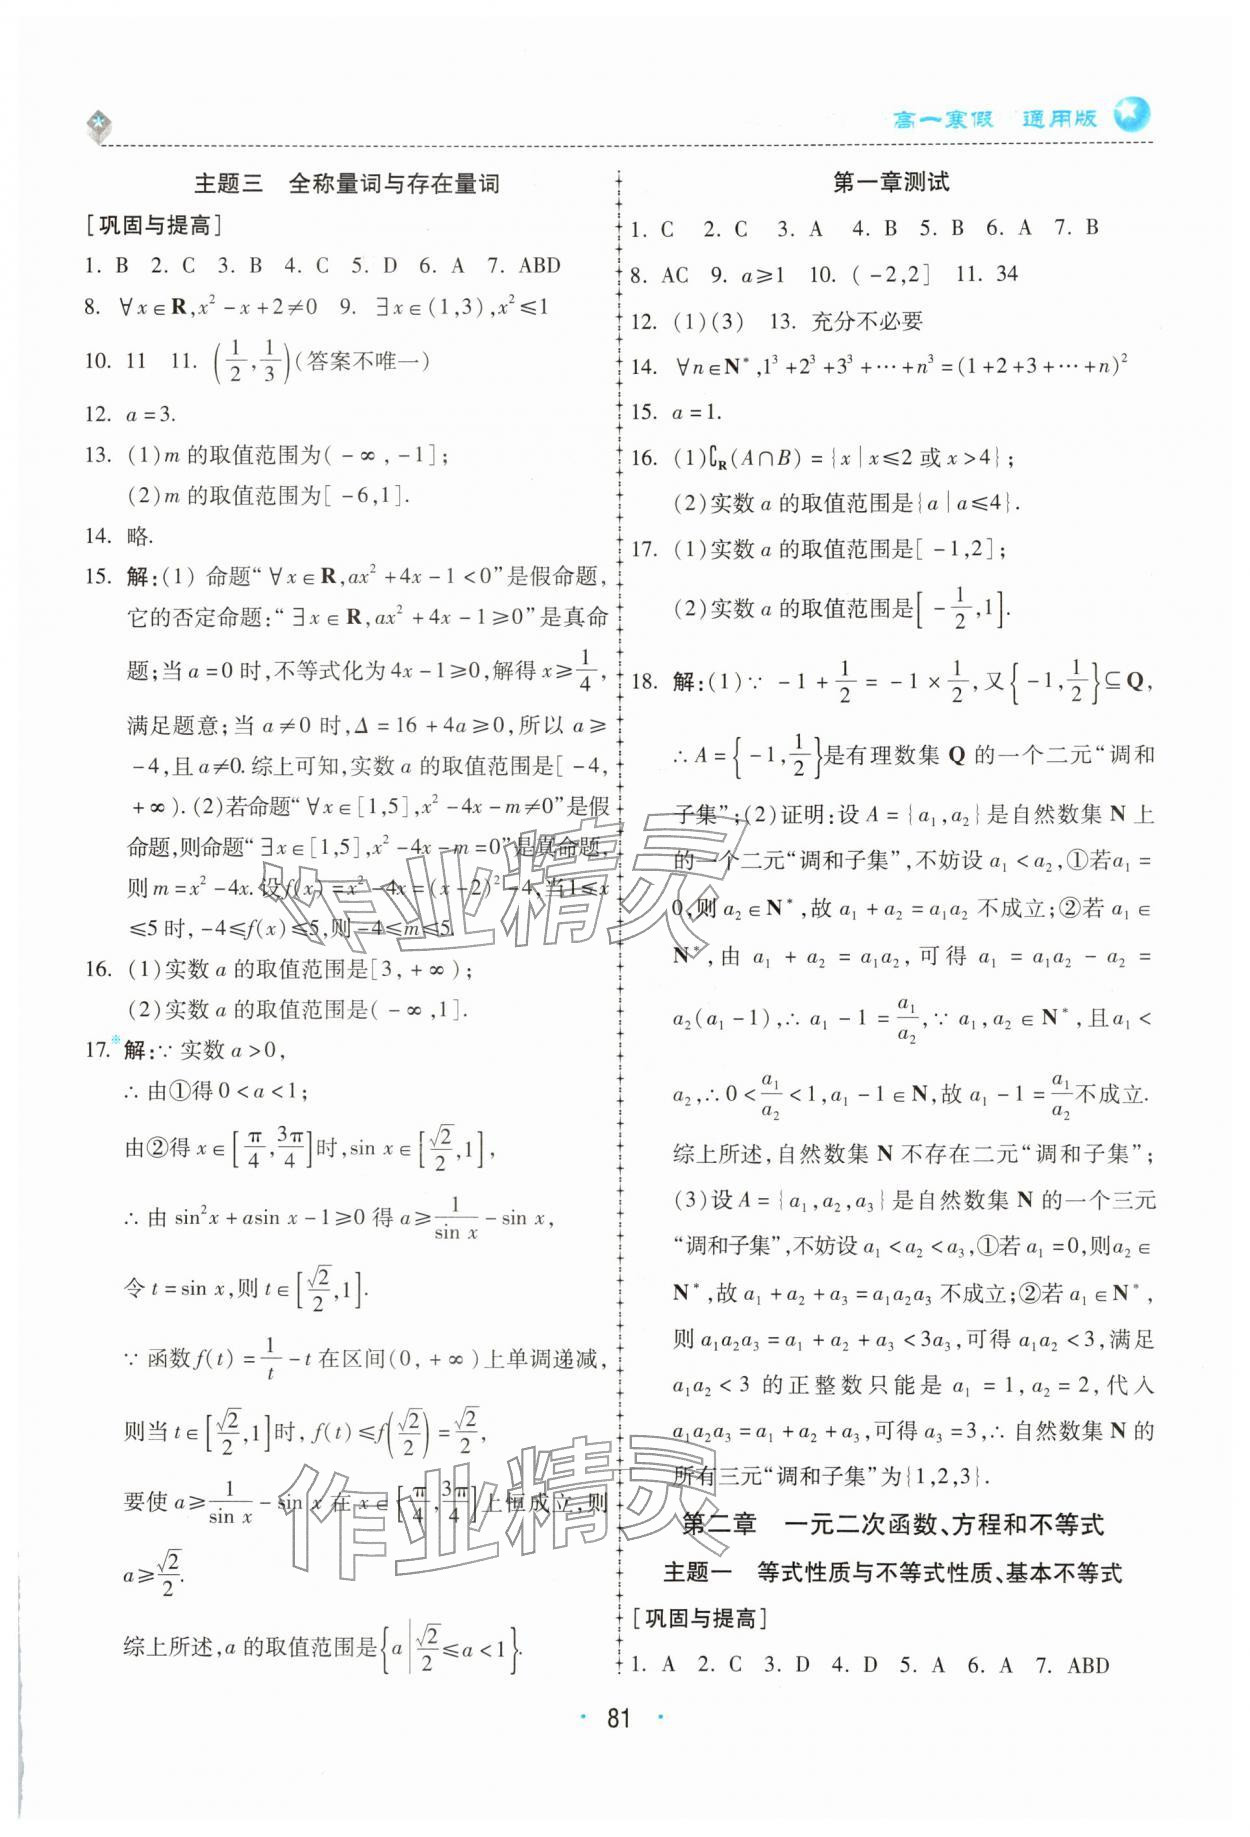 高一寒假 通用版
主题三 全称量词与存在量词
[巩固与提高]
1. B 2. C 3. B 4. C 5. D 6. A 7. ABD
8. ∀x∈R,x²-x+2≠0 9. ∃x∈(1,3),x²≤1
10. 11 11. (1/2,1/3)(答案不唯一)
12. a=3.
13. (1)m 的取值范围为(-∞,-1];
(2)m 的取值范围为[-6,1].
14. 略.
15. 解:(1) 命题“∀x∈R,ax²+4x-1<0”是假命题,
它的否定命题:“∃x∈R,ax²+4x-1≥0”是真命
题;当 a=0 时,不等式化为 4x-1≥0,解得 x≥1/4,
满足题意;当 a≠0 时,Δ=16+4a≥0,所以 a≥
-4,且 a≠0.综上可知,实数 a 的取值范围是[-4,
+∞).(2)若命题“∀x∈[1,5],x²-4x-m≠0”是假
命题,则命题“∃x∈[1,5],x²-4x-m=0”是真命题,
则 m=x²-4x.设f(x)=x²-4x=(x-2)²-4,当1≤x
≤5 时,-4≤f(x)≤5,则-4≤m≤5.
16. (1)实数 a 的取值范围是[3,+∞);
(2)实数 a 的取值范围是(-∞,1].
17.※解:∵实数 a>0,
∴由①得 0<a<1;
由②得 x∈[π/4,3π/4]时,sin x∈[√2/2,1],
∴由 sin²x+asin x-1≥0 得 a≥1/sin x-sin x,
令 t=sin x,则 t∈[√2/2,1].
∵函数f(t)=1/t-t 在区间(0,+∞)上单调递减,
则当 t∈[√2/2,1]时,f(t)≤f(√2/2)=√2/2,
要使 a≥1/sin x-sin x 在 x∈[π/4,3π/4]上恒成立,则
a≥√2/2.
综上所述,a 的取值范围是{a|√2/2≤a<1}.
第一章测试
1. C 2. C 3. A 4. B 5. B 6. A 7. B
8. AC 9. a≥1 10. (-2,2] 11. 34
12. (1)(3) 13. 充分不必要
14. ∀n∈N*,1³+2³+3³+⋯+n³=(1+2+3+⋯+n)²
15. a=1.
16. (1)∁R(A∩B)={x|x≤2 或 x>4};
(2)实数 a 的取值范围是{a|a≤4}.
17. (1)实数 a 的取值范围是[-1,2];
(2)实数 a 的取值范围是[-1/2,1].
18. 解:(1)∵ -1+1/2=-1×1/2,又{-1,1/2}⊆Q,
∴A={-1,1/2}是有理数集 Q 的一个二元“调和
子集”;(2)证明:设 A={a₁,a₂}是自然数集 N 上
的一个二元“调和子集”,不妨设 a₁<a₂,①若a₁=
0,则 a₂∈N*,故 a₁+a₂=a₁a₂ 不成立;②若 a₁∈
N*,由 a₁+a₂=a₁a₂,可得 a₁=a₁a₂-a₂=
a₂(a₁-1),∴a₁-1=a₁/a₂,∵a₁,a₂∈N*,且a₁<
a₂,∴0<a₁/a₂<1,a₁-1∈N,故 a₁-1=a₁/a₂不成立.
综上所述,自然数集 N 不存在二元“调和子集”;
(3)设 A={a₁,a₂,a₃}是自然数集 N 的一个三元
“调和子集”,不妨设 a₁<a₂<a₃,①若 a₁=0,则a₂∈
N*,故 a₁+a₂+a₃=a₁a₂a₃ 不成立;②若 a₁∈N*,
则 a₁a₂a₃=a₁+a₂+a₃<3a₃,可得 a₁a₂<3,满足
a₁a₂<3 的正整数只能是 a₁=1,a₂=2,代入
a₁a₂a₃=a₁+a₂+a₃,可得 a₃=3,∴自然数集 N 的
所有三元“调和子集”为{1,2,3}.
第二章 一元二次函数、方程和不等式
主题一 等式性质与不等式性质、基本不等式
[巩固与提高]
1. A 2. C 3. D 4. D 5. A 6. A 7. ABD
作业精灵
作业精灵
· 81 ·